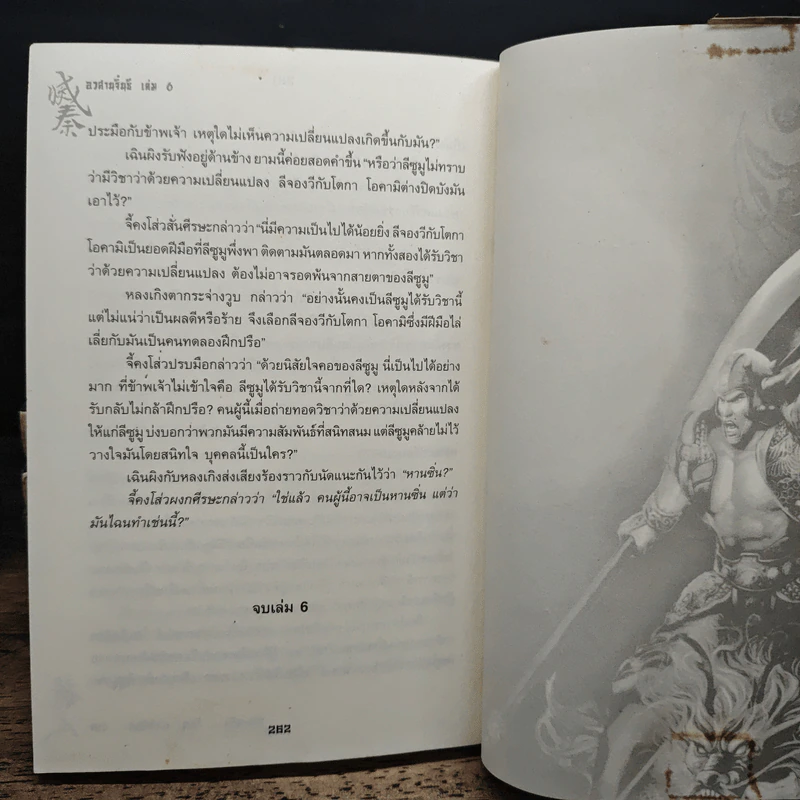 滅秦
อวสานจิ๋นซี เล่ม 6
ประมือกับข้าพเจ้า เหตุใดไม่เห็นความเปลี่ยนแปลงเกิดขึ้นกับมัน?”
เฉินผิงรับฟังอยู่ด้านข้าง ยามนี้ค่อยสอดคำขึ้น “หรือว่าลีซูมูไม่ทราบ
ว่ามีวิชาว่าด้วยความเปลี่ยนแปลง ลีจองวีกับโตกา โอคามิต่างปิดบังมัน
เอาไว้?”
จี้คงโส่วสั่นศีรษะกล่าวว่า “นี่มีความเป็นไปได้น้อยยิ่ง ลีจองวีกับโตกา
โอคามิเป็นยอดฝีมือที่ลีซูมูพึ่งพา ติดตามมันตลอดมา หากทั้งสองได้รับวิชา
ว่าด้วยความเปลี่ยนแปลง ต้องไม่อาจรอดพ้นจากสายตาของลีซูมู”
หลงเกิงตากระจ่างวูบ กล่าวว่า “อย่างนั้นคงเป็นลีซูมูได้รับวิชานี้
แต่ไม่แน่ว่าเป็นผลดีหรือร้าย จึงเลือกลีจองวีกับโตกา โอคามิซึ่งมีฝีมือไล่
เลี่ยกับมันเป็นคนทดลองฝึกปรือ”
จี้คงโส่วปรบมือกล่าวว่า “ด้วยนิสัยใจคอของลีซูมู นี่เป็นไปได้อย่าง
มาก ที่ข้าพเจ้าไม่เข้าใจคือ ลีซูมูได้รับวิชานี้จากที่ใด? เหตุใดหลังจากได้
รับกลับไม่กล้าฝึกปรือ? คนผู้นี้เมื่อถ่ายทอดวิชาว่าด้วยความเปลี่ยนแปลง
ให้แก่ลีซูมู บ่งบอกว่าพวกมันมีความสัมพันธ์ที่สนิทสนม แต่ลีซูมูคล้ายไม่ไว้
วางใจมันโดยสนิทใจ บุคคลนี้เป็นใคร?”
เฉินผิงกับหลงเกิงส่งเสียงร้องราวกับนัดแนะกันไว้ว่า “หานซิ่น?”
จี้คงโส่วผงกศีรษะกล่าวว่า “ใช่แล้ว คนผู้นี้อาจเป็นหานซิ่น แต่ว่า
มันไฉนทำเช่นนี้?”
จบเล่ม 6
262